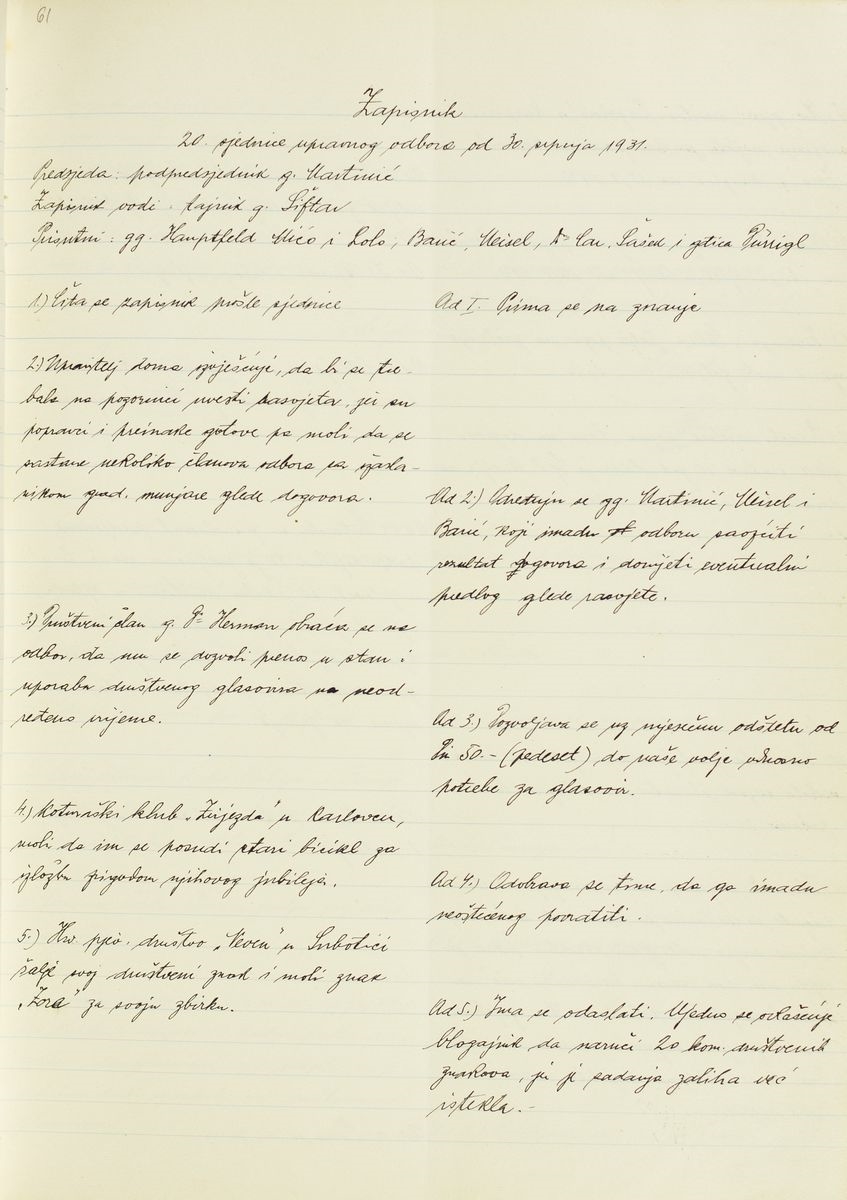 61
Zapisnik
20. sjednice upravnog odbora od 30. srpnja 1931.
Predsjeda: podpredsjednik g. Martinić
Zapisnik vodi: tajnik g. Šiftar
Prisutni: gg. Hauptfeld Mićo i Lolo, Barić, Meisel, Dr Car, Šašek i gtica Pürrigl
1.) Čita se zapisnik prošle sjednice
Ad I. Prima se na znanje
2.) Upravitelj doma izvješćuje, da bi se tre-
bala na pozornici uvesti rasvjeta, jer su
popravci i preinake gotove pa moli da se
sastane nekoliko članova odbora sa izasla-
nikom grad. munjare glede dogovora.
Ad 2.) Određuju se gg. Martinić, Meisel i
Barić, koji imadu odboru saopćiti
rezultat dogovora i donijeti eventualni
predlog glede rasvjete.
3.) Društveni član g. Dr Herman obraća se na
odbor, da mu se dozvoli prenos u stan i
uporaba društvenog glasovira na neod-
ređeno vrijeme.
Ad 3.) Dozvoljava se uz mjesečnu odštetu od
Din 50.- (pedeset) do naše volje odnosno
potrebe za glasovir.
4.) Koturaški klub „Zvijezda" u Karlovcu,
moli da im se posudi stari bicikl za
izložbu prigodom njihovog jubileja.
Ad 4.) Odobrava se time, da ga imadu
neoštećenog povratiti.
5.) Hrv. pjev. društvo „Neven" u Subotici
šalje svoj društveni znak i moli znak
„Zora" za svoju zbirku.
Ad 5.) Ima se odaslati. Ujedno se ovlašćuje
blagajnik da naruči 20 kom. društvenih
znakova, jer je sadanja zaliha već
istekla.-